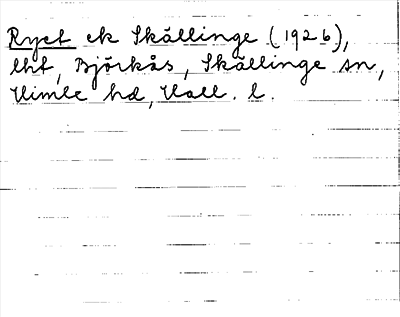 Ryet ek Skällinge (1926),
lht, Björkås, Skällinge sn,
Himle hd, Hall. l.